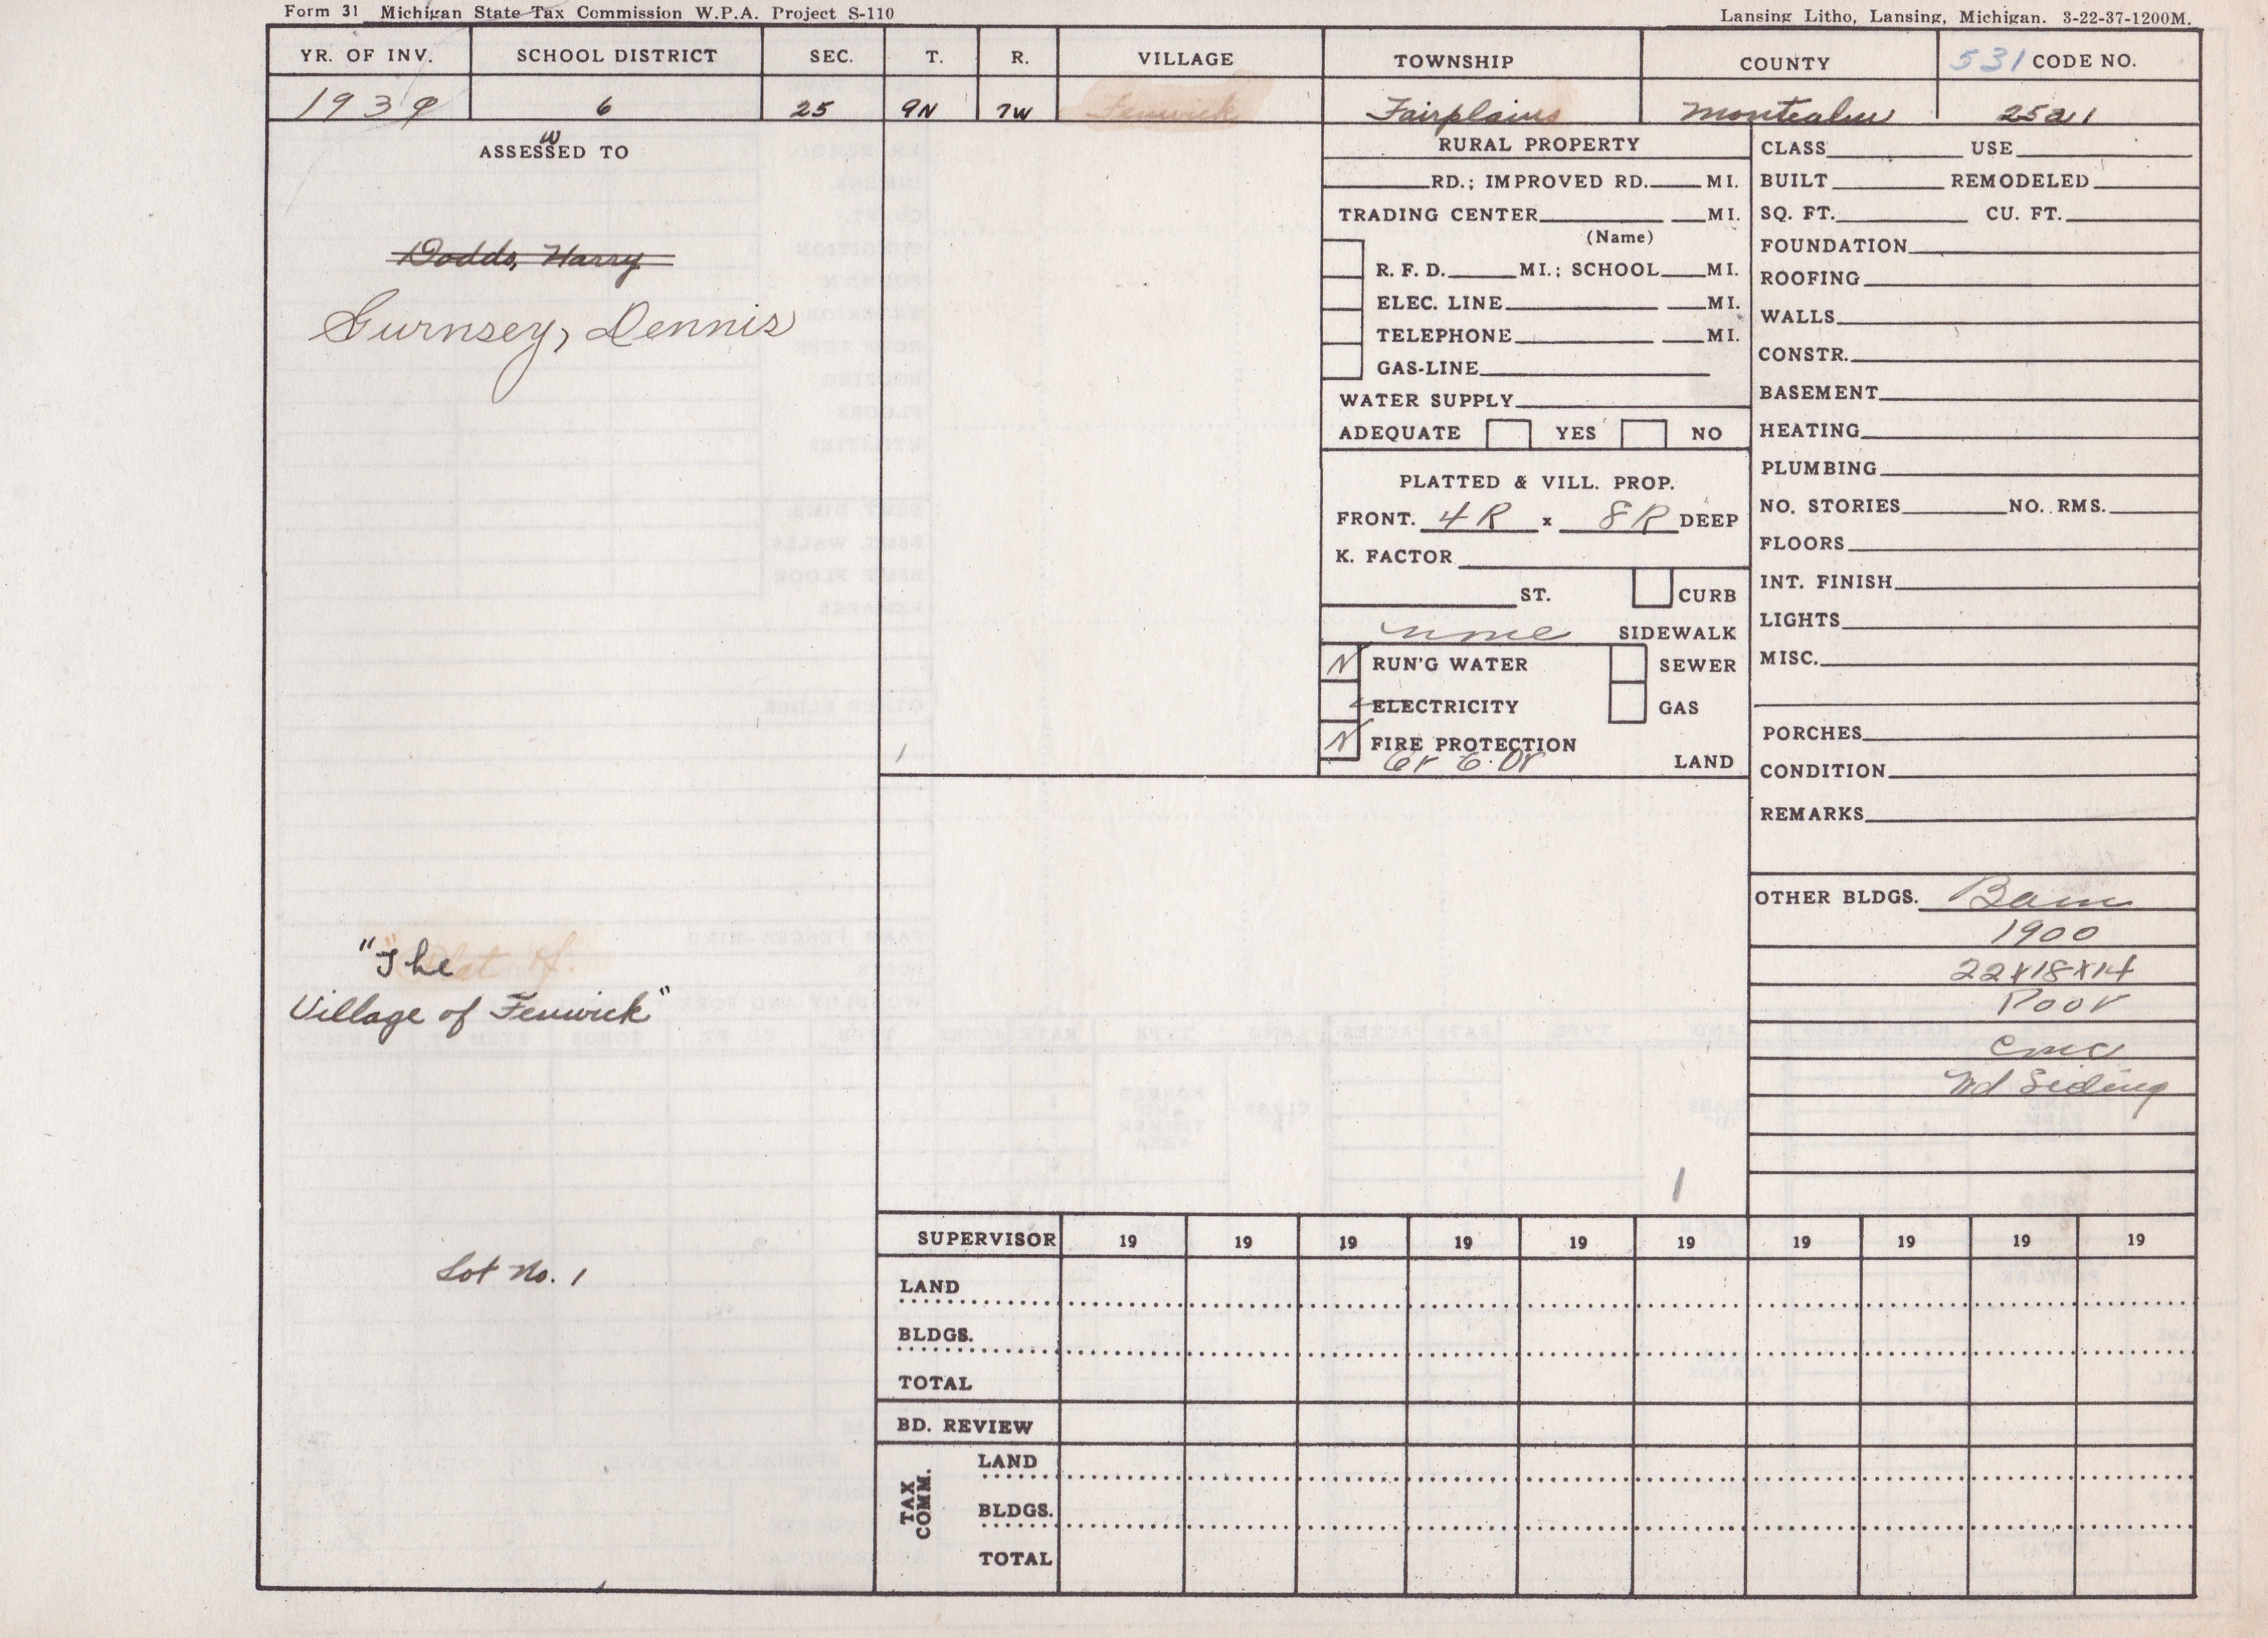 Form 31 Michigan State Tax Commission W.P.A. Project S-110
Lansing Litho, Lansing, Michigan. 3-22-37-1200M.
YR. OF INV. SCHOOL DISTRICT SEC. T. R. VILLAGE TOWNSHIP COUNTY 531 CODE NO.
1939 6 25 9N 7W Fenwick Fairplains Montcalm 25a1
W
ASSESSED TO
Dodds, Harry
Gurnsey, Dennis
"The
Village of Fenwick"
Lot No. 1
1
RURAL PROPERTY
RD.; IMPROVED RD. MI.
TRADING CENTER MI.
(Name)
R. F. D. MI.; SCHOOL MI.
ELEC. LINE MI.
TELEPHONE MI.
GAS-LINE
WATER SUPPLY
ADEQUATE YES NO
PLATTED & VILL. PROP.
FRONT. 4R x 8R DEEP
K. FACTOR
ST. CURB
none SIDEWALK
N RUN'G WATER SEWER
ELECTRICITY GAS
N FIRE PROTECTION
Gr G. Dr LAND
1
CLASS USE
BUILT REMODELED
SQ. FT. CU. FT.
FOUNDATION
ROOFING
WALLS
CONSTR.
BASEMENT
HEATING
PLUMBING
NO. STORIES NO. RMS.
FLOORS
INT. FINISH
LIGHTS
MISC.
PORCHES
CONDITION
REMARKS
OTHER BLDGS. Barn
1900
22x18x14
Poor
Wd Siding
SUPERVISOR 19 19 19 19 19 19 19 19 19 19
LAND
BLDGS.
TOTAL
BD. REVIEW
TAX COMM.
LAND
BLDGS.
TOTAL